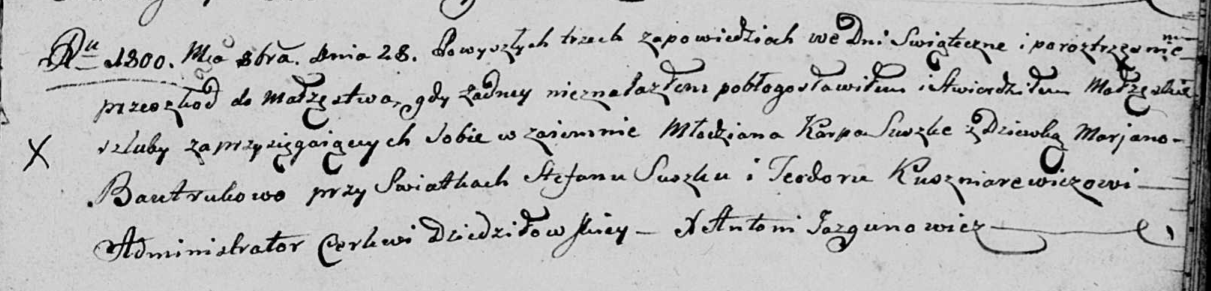 Rku 1800. Mca 8bra. dnia 28. Po wyszłych trzech zapowiedziach we Dni Swiąteczne i po roztrząsnię
przeszkod do Małżęstwa, gdy żadney nieznalazłem pobłogosławiłem i stwierdziłem Małżęskie
szluby zaprzysięgaiących sobie wzaiemnie Młodziana Karpa Suszke z Dziewką Marjano-
Bautrukowo przy Swiatkach Stefanu Suszku i Teodoru Kuszniarewiczowi
Administrator Cerkwi Dziedziłowskiey — X Antoni Jazgunowicz